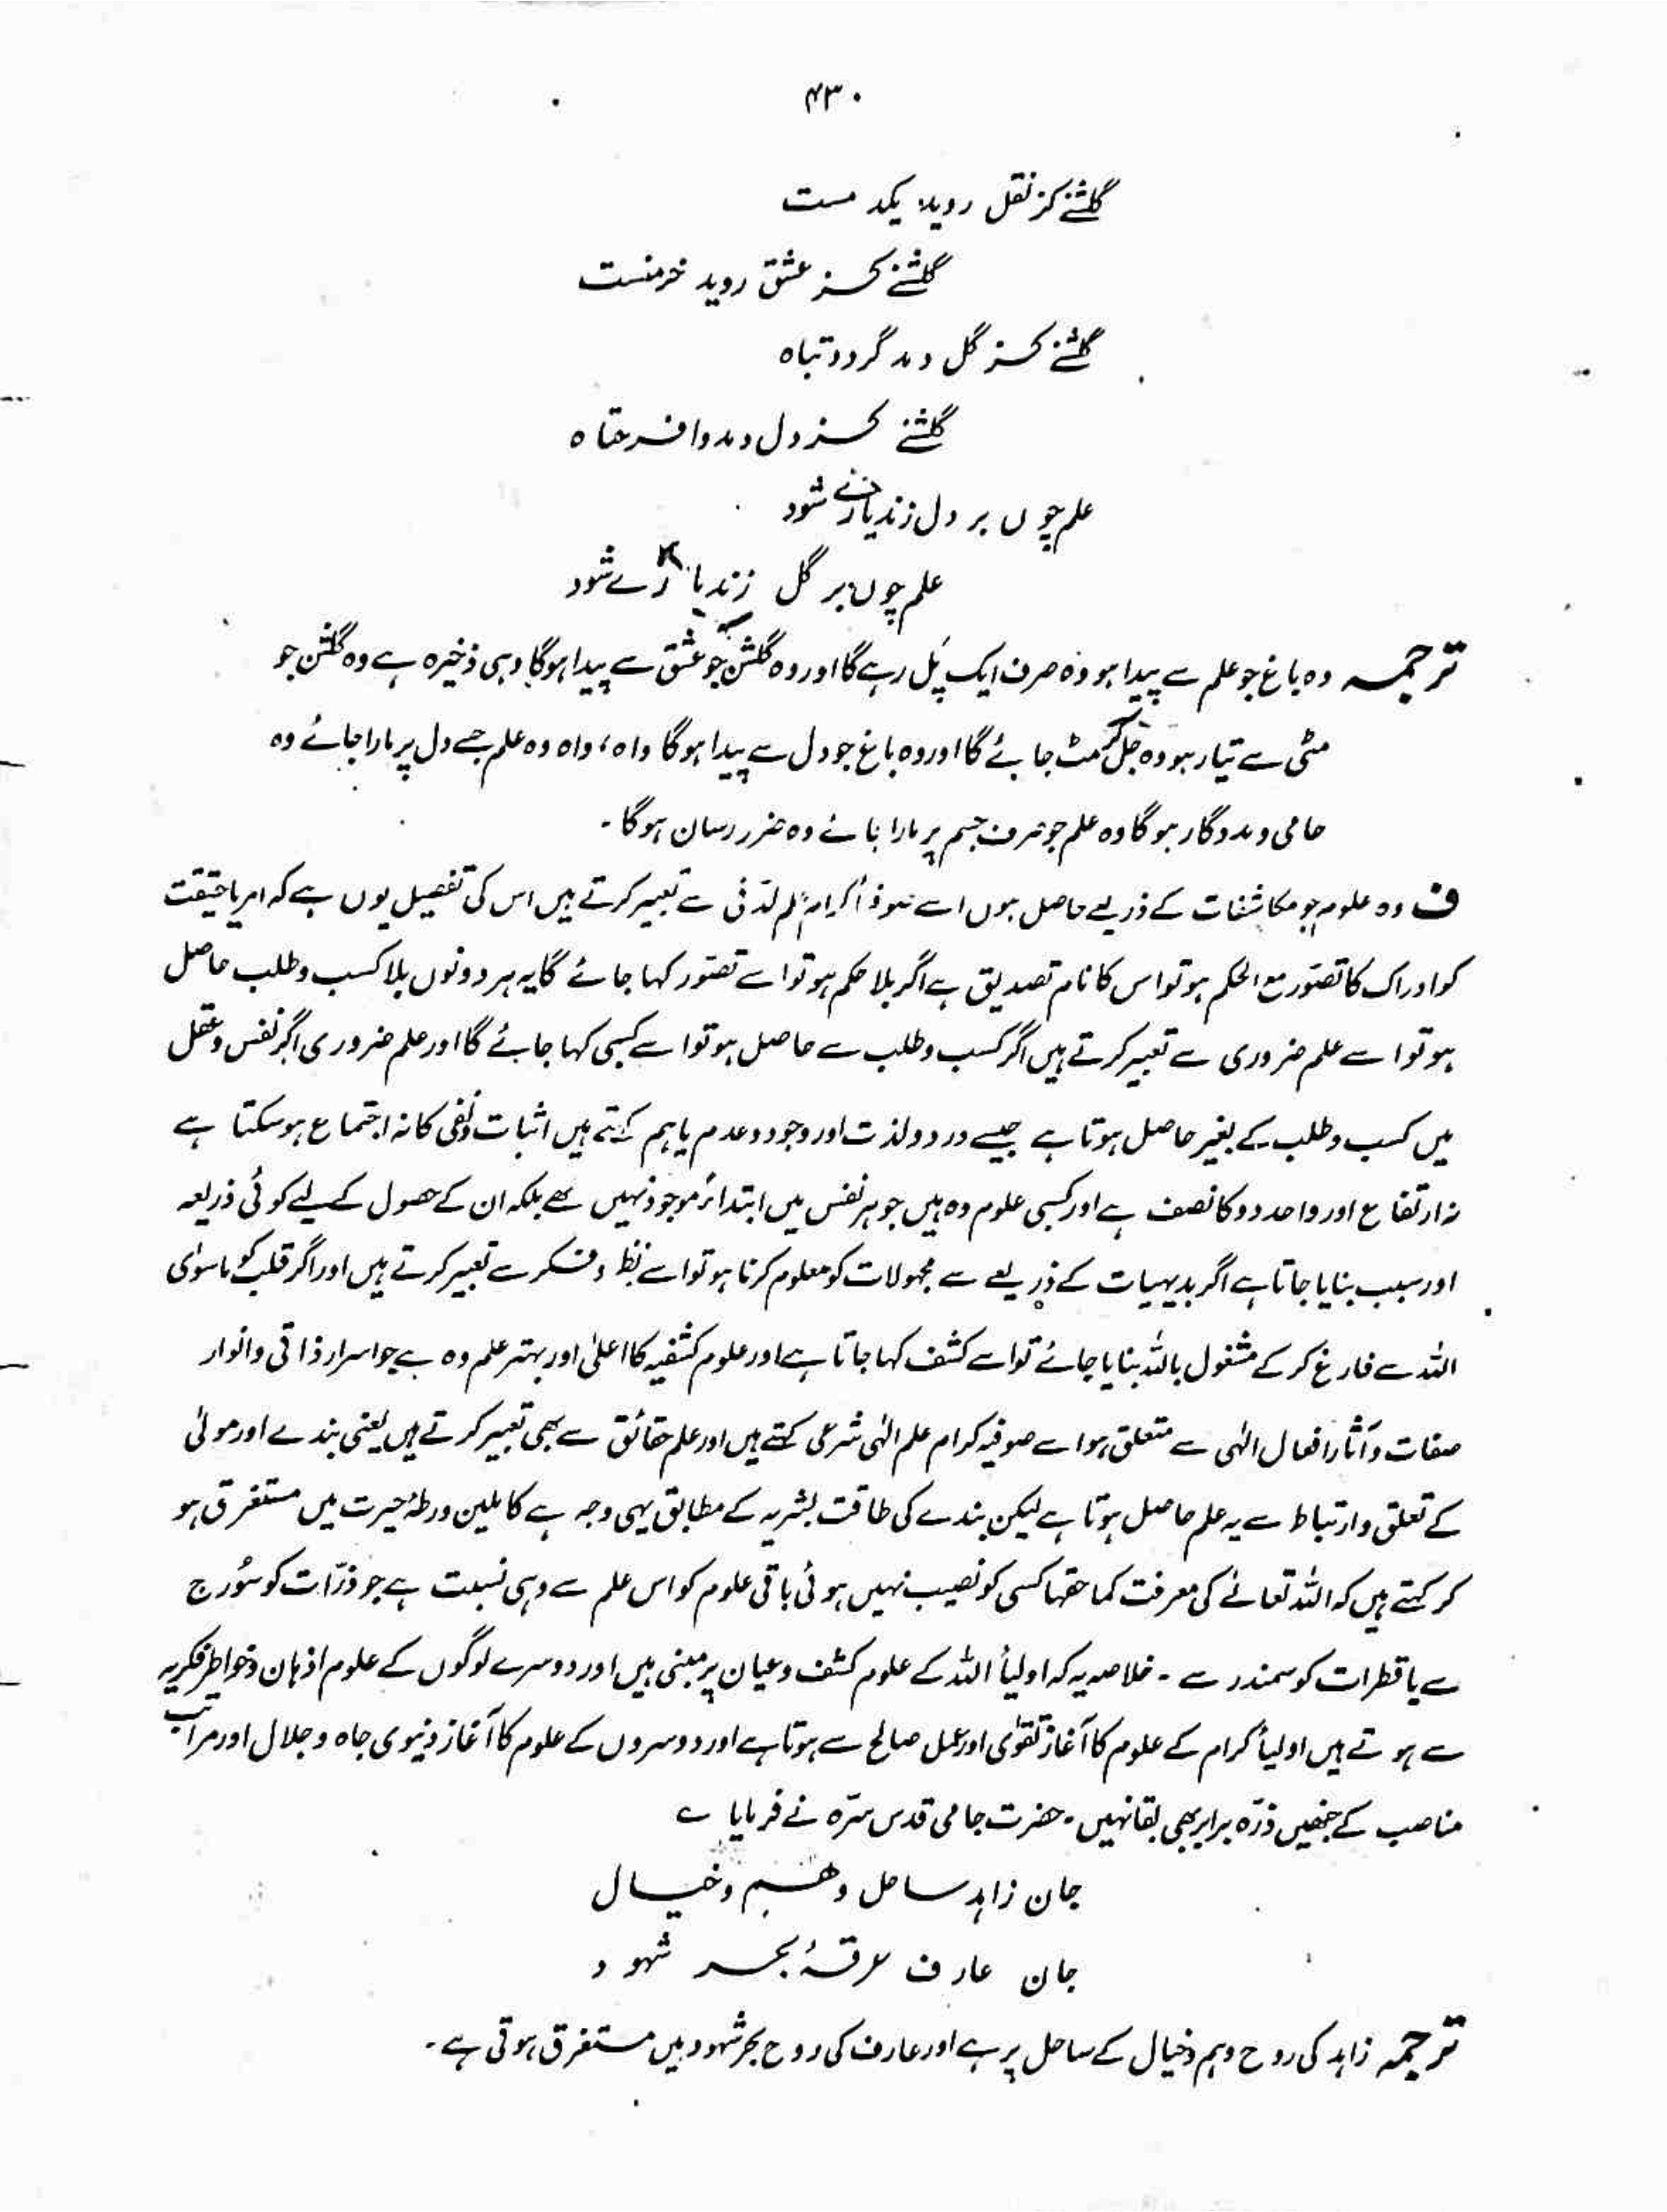 ۴۳۰
گلشنے کز نقل روید یکدمست
گلشنے کز عشق روید خرمنست
گلشنے کز گل دمد گردد تباہ
گلشنے کز دل دمد وافرحتاہ
علم چوں بر دل زند یارے شود
علم چوں بر گل زند بارے شود
ترجمہ وہ باغ جو علم سے پیدا ہو وہ صرف ایک پَل رہے گا اور وہ گلشن جو عشق سے پیدا ہوگا وہی ذخیرہ ہے وہ گلشن جو
مٹی سے تیار ہو وہ جل کر مٹ جائے گا اور وہ باغ جو دل سے پیدا ہوگا واہ، واہ وہ علم جسے دل پر مارا جائے وہ
حامی و مددگار ہوگا وہ علم جو صرف جسم پر مارا جائے وہ ضرر رسان ہوگا ۔
ف وہ علوم جو مکاشفات کے ذریعے حاصل ہوں اسے صوفیۂ کرام علم لدنّی سے تعبیر کرتے ہیں اس کی تفصیل یوں ہے کہ امر یا حقیقت
کو ادراک کا تصوّر مع الحکم ہو تو اس کا نام تصدیق ہے اگر بلا حکم ہو تو اسے تصوّر کہا جائے گا یہ ہر دونوں بلا کسب و طلب حاصل
ہو تو اسے علم ضروری سے تعبیر کرتے ہیں اگر کسب و طلب سے حاصل ہو تو اسے کسبی کہا جائے گا اور علم ضروری اگر نفس و عقل
میں کسب و طلب کے بغیر حاصل ہوتا ہے جیسے درد و لذت اور وجود و عدم یا ہم کہتے ہیں اثبات و نفی کا نہ اجتماع ہو سکتا ہے
نہ ارتفاع اور واحد دو کا نصف ہے اور کسبی علوم وہ ہیں جو ہر نفس میں ابتداءً موجود نہیں تھے بلکہ ان کے حصول کے لیے کوئی ذریعہ
اور سبب بنایا جاتا ہے اگر بدیہیات کے ذریعے سے مجہولات کو معلوم کرنا ہو تو اسے نظر و فکر سے تعبیر کرتے ہیں اور اگر قلب کو ماسوٰی
اللہ سے فارغ کر کے مشغول باللہ بنایا جائے تو اسے کشف کہا جاتا ہے اور علوم کشفیہ کا اعلیٰ اور بہتر علم وہ ہے جو اسرار ذاتی و انوار
صفات و آثار افعال الہٰی سے متعلق ہو اسے صوفیہ کرام علم الہٰی شرعی کہتے ہیں اور علم حقائق سے بھی تعبیر کرتے ہیں یعنی بندے اور مولیٰ
کے تعلق و ارتباط سے یہ علم حاصل ہوتا ہے لیکن بندے کی طاقت بشریہ کے مطابق یہی وجہ ہے کاملین ورطۂ حیرت میں مستغرق ہو
کر کہتے ہیں کہ اللہ تعالےٰ کی معرفت کما حقہا کسی کو نصیب نہیں ہوئی باقی علوم کو اس علم سے وہی نسبت ہے جو ذرّات کو سُورج
سے یا قطرات کو سمندر سے ۔ خلاصہ یہ کہ اولیأ اللہ کے علوم کشف و عیان پر مبنی ہیں اور دوسرے لوگوں کے علوم اذہان و خواطر فکریہ
سے ہوتے ہیں اولیأ کرام کے علوم کا آغاز تقوٰی اور عمل صالح سے ہوتا ہے اور دوسروں کے علوم کا آغاز دنیوی جاہ و جلال اور مراتب
مناصب کے جنھیں ذرّہ برابر بھی بقا نہیں ۔ حضرت جامی قدس سرّہ نے فرمایا ے
جان زاہد ساحل وھم و خیال
جان عارف غرقۂ بحر شہود
ترجمہ زاہد کی روح وہم و خیال کے ساحل پر ہے اور عارف کی روح بحر شہود میں مستغرق ہوتی ہے ۔